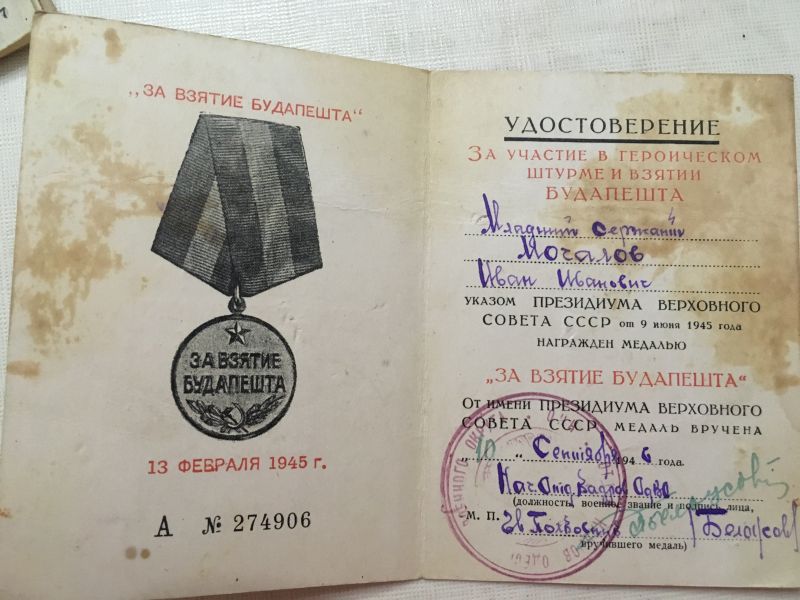 „ЗА ВЗЯТИЕ БУДАПЕШТА“
ЗА ВЗЯТИЕ
БУДАПЕШТА
13 ФЕВРАЛЯ 1945 г.
А № 274906
УДОСТОВЕРЕНИЕ
ЗА УЧАСТИЕ В ГЕРОИЧЕСКОМ
ШТУРМЕ И ВЗЯТИИ
БУДАПЕШТА
Младший Сержант
Мочалов
Иван Иванович
УКАЗОМ ПРЕЗИДИУМА ВЕРХОВНОГО
СОВЕТА СССР от 9 июня 1945 года
НАГРАЖДЕН МЕДАЛЬЮ
„ЗА ВЗЯТИЕ БУДАПЕШТА“
ОТ ИМЕНИ ПРЕЗИДИУМА ВЕРХОВНОГО
СОВЕТА СССР МЕДАЛЬ ВРУЧЕНА
„10„ Сентября 1946 года.
Нач. Отд. Кадров ОдВО
(должность, военное звание и подпись лица,
М. П. Гв Полковник /Белоусов/
вручившего медаль)